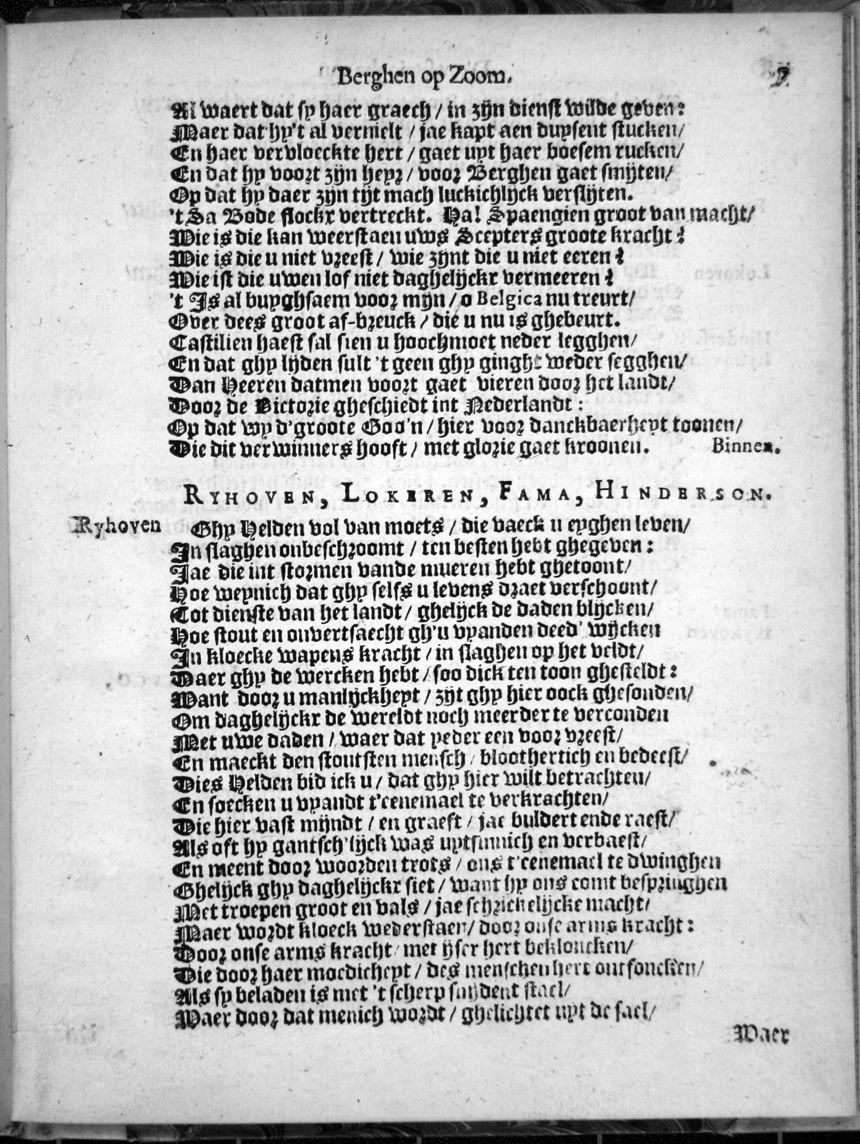 Berghen op Zoom.
Al waert dat sy haer graech / in zijn dienst wilde geven:
Maer dat hy't al vernielt / jae kapt aen duysent stucken/
En haer vervloeckte hert / gaet uyt haer boesem rucken/
En dat hy voort zijn heyr / voor Berghen gaet smijten/
Op dat hy daer zijn tijt mach luckichlijck verslijten.
't Sa Bode flockx vertreckt. Ha! Spaengien groot van macht/
Wie is die kan weerstaen uws Scepters groote kracht?
Wie is die u niet vreest / wie zijnt die u niet eeren?
Wie ist die uwen lof niet daghelijckx vermeeren?
't Is al buyghsaem voor mijn / o Belgica nu treurt/
Over dees groot af-breuck / die u nu is ghebeurt.
Castilien haest sal sien u hoochmoet neder legghen/
En dat ghy lijden sult 't geen ghy ginght weder segghen/
Dan Heeren datmen voort gaet vieren door het landt/
Door de Victorie gheschiedt int Nederlandt:
Op dat wy d'groote Goo'n / hier voor danckbaerheyt toonen/
Die dit verwinners hooft / met glorie gaet kroonen. Binnen.
RYHOVEN, LOKEREN, FAMA, HINDERSON.
Ryhoven Ghy Helden vol van moets / die vaeck u eyghen leven/
In slaghen onbeschroomt / ten besten hebt ghegeven:
Jae die int stormen vande mueren hebt ghetoont/
Hoe weynich dat ghy selfs u levens draet verschoont/
Tot dienste van het landt / ghelijck de daden blijcken/
Hoe stout en onvertsaecht gh'u vyanden deed' wijcken
In kloecke wapens kracht / in slaghen op het veldt/
Daer ghy de wercken hebt / soo dick ten toon ghesteldt:
Want door u manlijckheyt / zijt ghy hier oock ghesonden/
Om daghelijckx de wereldt noch meerder te verconden
Met uwe daden / waer dat yeder een voor vreest/
En maeckt den stoutsten mensch / bloothertich en bedeest/
Dies Helden bid ick u / dat ghy hier wilt betrachten/
En soecken u vyandt t'eenemael te verkrachten/
Die hier vast mijndt / en graeft / jae buldert ende raest/
Als oft hy gantsch'lijck was uytsinnich en verbaest/
En meent door woorden trots / ons t'eenemael te dwinghen
Ghelijck ghy daghelijckx siet / want hy ons comt bespringhen
Met troepen groot en vals / jae schrickelijcke macht/
Maer wordt kloeck wederstaen / door onse arms kracht:
Door onse arms kracht / met ijser hert bekloncken/
Die door haer moedicheyt / des menschen hert ontfoncken/
Als sy beladen is met 't scherp snijdent stael/
Waer door dat menich wordt / ghelichtet uyt de sael/
Waer